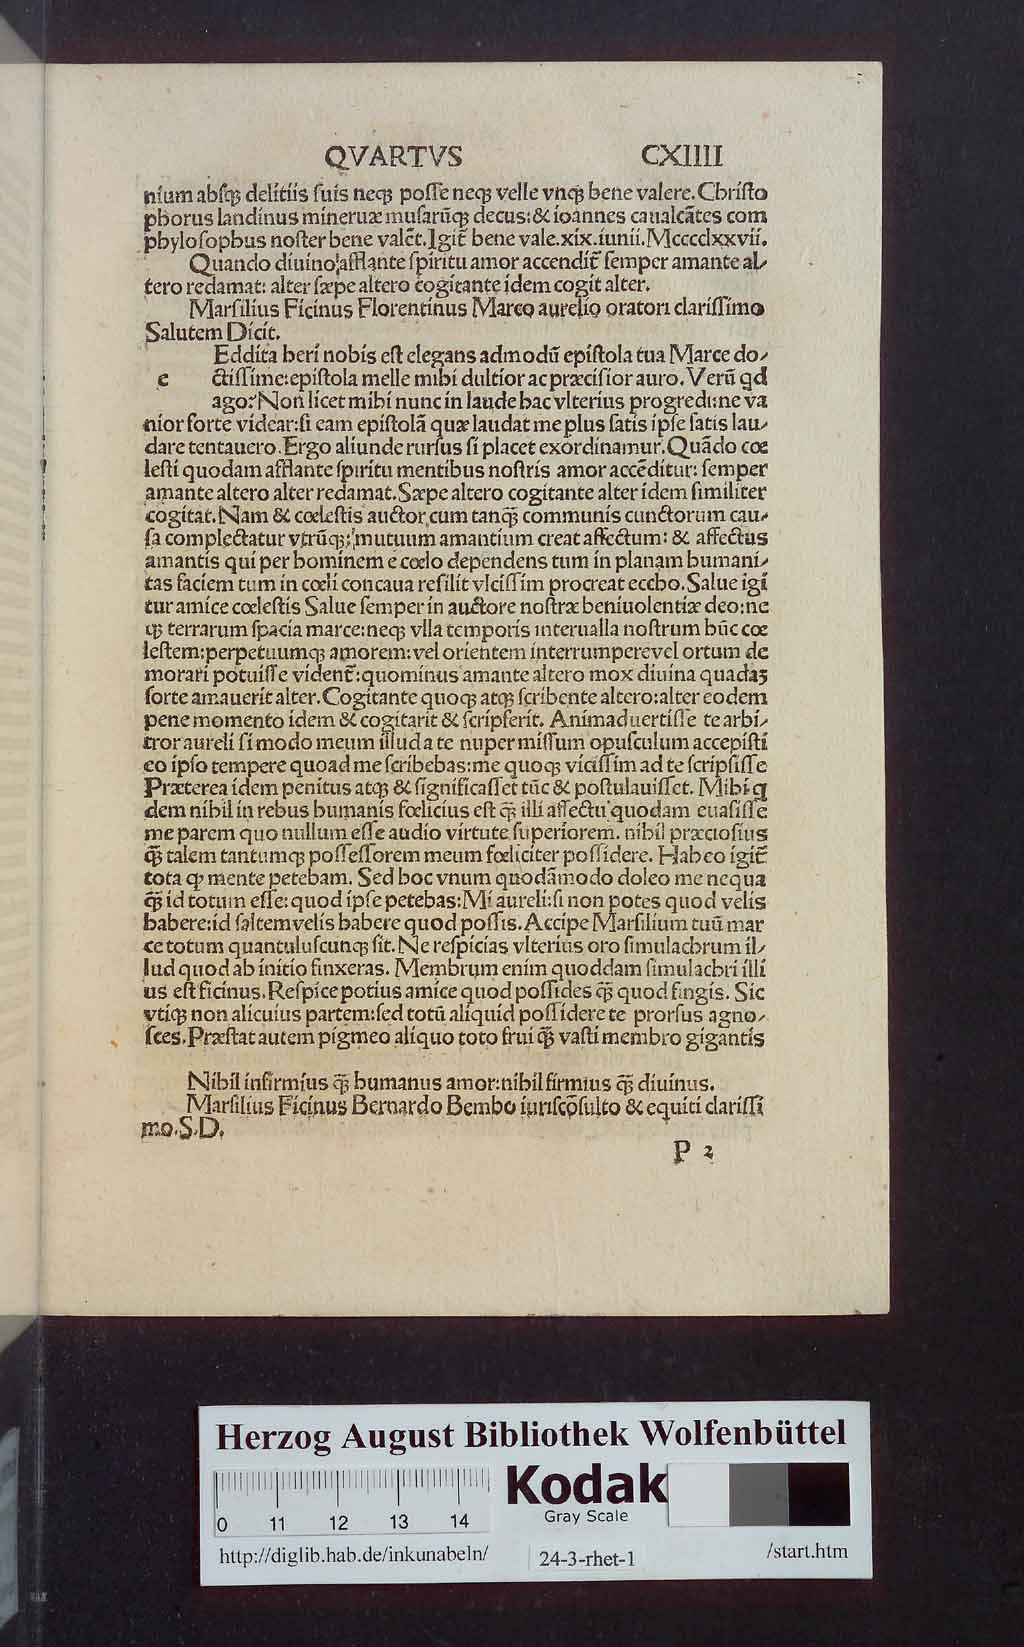 QVARTVS CXIIII
nium absq; delitiis suis neq; posse neq; velle vnq; bene valere. Christo
phorus landinus mineruæ musarūq; decus: & ioannes caualcātes com
phylosophus noster bene valēt. Igit̄ bene vale. xix. iunii. Mcccclxxvii.
Quando diuino afflante spiritu amor accendit̄ semper amante al-
tero redamat: alter sæpe altero cogitante idem cogit alter.
Marsilius Ficinus Florentinus Marco aurelio oratori clarissimo
Salutem Dicit.
Eddita heri nobis est elegans admodū epistola tua Marce do-
e ctissime: epistola melle mihi dultior ac præcisior auro. Verū qd
ago? Non licet mihi nunc in laude hac vlterius progredi: ne va
nior forte videar: si eam epistolā quæ laudat me plus satis ipse satis lau-
dare tentauero. Ergo aliunde rursus si placet exordinamur. Quādo cœ
lesti quodam afflante spiritu mentibus nostris amor accēditur: semper
amante altero alter redamat. Sæpe altero cogitante alter idem similiter
cogitat. Nam & cœlestis auctor cum tanq̄ communis cunctorum cau-
sa complectatur vtrūq; mutuum amantium creat affectum: & affectus
amantis qui per hominem e cœlo dependens tum in planam humani-
tas faciem tum in cœli concaua resilit vlcissim procreat eccho. Salue igi
tur amice cœlestis Salue semper in auctore nostræ beniuolentiæ deo: ne
q; terrarum spacia marce: neq; vlla temporis interualla nostrum hūc cœ
lestem: perpetuumq; amorem: vel orientem interrumpere vel ortum de
morari potuisse vident̄: quominus amante altero mox diuina quadaʒ
sorte amauerit alter. Cogitante quoq; atq; scribente altero: alter eodem
pene momento idem & cogitarit & scripserit. Animaduertisse te arbi-
tror aureli si modo meum illud a te nuper missum opusculum accepisti
eo ipso tempere quo ad me scribebas: me quoq; vicissim ad te scripsisse
Præterea idem penitus atq; & significasset tūc & postulauisset. Mihi q
dem nihil in rebus humanis fœlicius est q̄ illi affectu quodam euasisse
me parem quo nullum esse audio virtute superiorem. nihil præciosius
q̄ talem tantumq; possessorem meum fœliciter possidere. Habeo igit̄
tota qͥ mente petebam. Sed hoc vnum quodāmodo doleo me nequa
q̄ id totum esse: quod ipse petebas: Mi aureli: si non potes quod velis
habere: id saltem velis habere quod possis. Accipe Marsilium tuū mar
ce totum quantuluscunq; sit. Ne respicias vlterius oro simulachrum il-
lud quod ab initio finxeras. Membrum enim quoddam simulachri illi
us est ficinus. Respice potius amice quod possides q̄ quod fingis. Sic
vtiq; non alicuius partem: sed totū aliquid possidere te prorsus agno-
sces. Præstat autem pigmeo aliquo toto frui q̄ vasti membro gigantis
Nihil infirmius q̄ humanus amor: nihil firmius q̄ diuinus.
Marsilius Ficinus Bernardo Bembo iuriscōsulto & equiti clarissi
mo. S. D.
P 2
Herzog August Bibliothek Wolfenbüttel
0 11 12 13 14
Kodak
Gray Scale
http://diglib.hab.de/inkunabeln/ 24-3-rhet-1 /start.htm